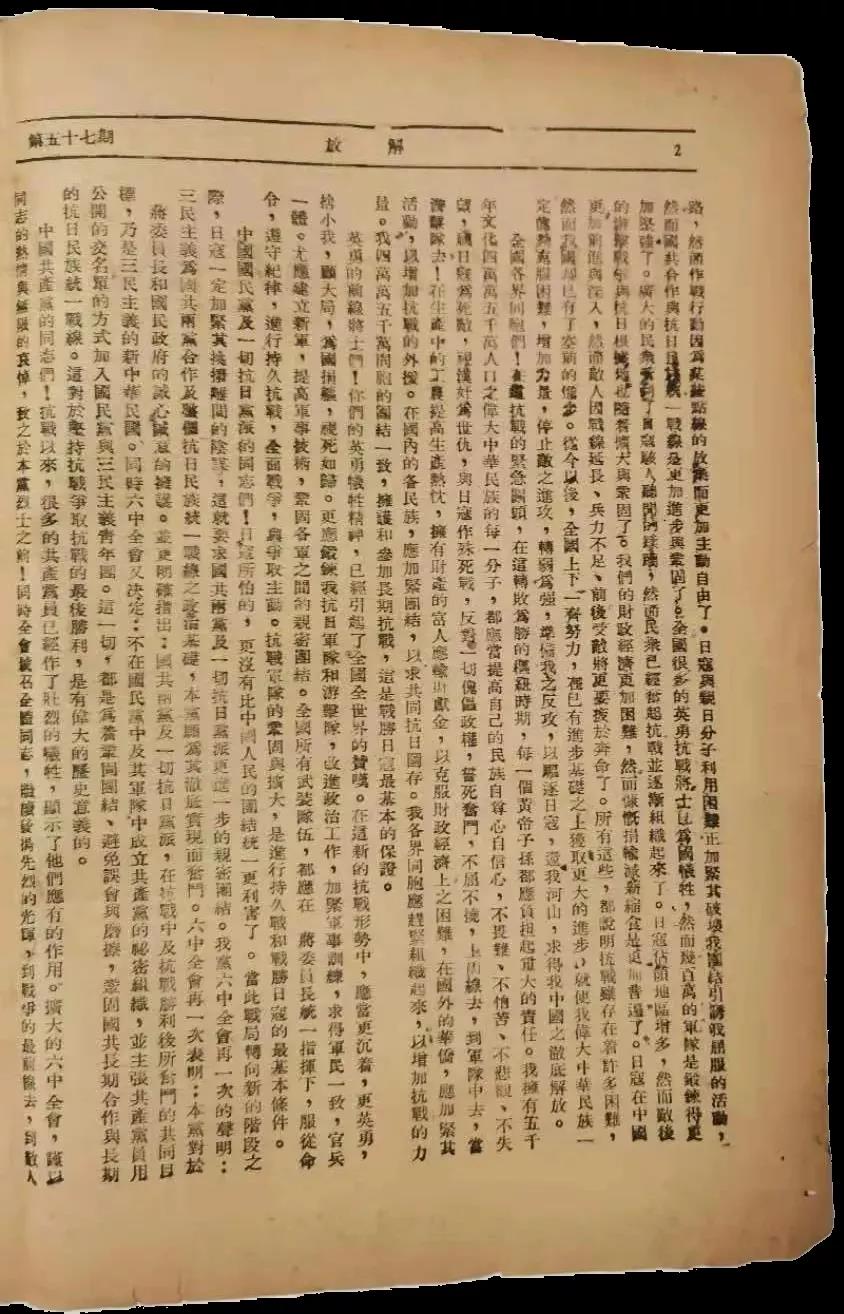 2
解　放
第五十七期
路，然而作戰行動因為某些點線的放棄而更加主動自由了。日寇與親日分子利用困難正加緊其破壞我團結引誘我屈服的活動，
然而國共合作與抗日民族統一戰線是更加進步與鞏固了。全國很多的英勇抗戰將士已為國犧牲，然而幾百萬的軍隊是鍛鍊得更
加堅強了。廣大的民眾受到了日寇駭人聽聞的蹂躪，然而民眾已經奮起抗戰並逐漸組織起來了。日寇佔領地區增多，然而敵後
的游擊戰爭與抗日根據地也隨着擴大與鞏固了。我們的財政經濟更加困難，然而慷慨捐輸減薪縮食是更加普遍了。日寇在中國
更加前進與深入，然而敵人因戰線延長、兵力不足、前後受敵將更要疲於奔命了。所有這些，都說明抗戰雖存在着許多困難，
然而我國却已有了空前的進步。從今以後，全國上下一齊努力，在已有進步基礎之上獲取更大的進步，就使我偉大中華民族一
定能夠克服困難，增加力量，停止敵之進攻，轉弱為強，準備我之反攻，以驅逐日寇，還我河山，求得我中國之徹底解放。
全國各界同胞們！在當抗戰的緊急關頭，在這轉敗為勝的樞紐時期，每一個黃帝子孫都應負担起重大的責任。我擁有五千
年文化四萬萬五千萬人口之偉大中華民族的每一分子，都應當提高自己的民族自尊心自信心，不畏難、不怕苦、不悲觀、不失
望，視日寇為死敵，視漢奸為世仇，與日寇作殊死戰，反對一切傀儡政權，當死奮鬥，不屈不撓，上前線去，到軍隊中去，當
游擊隊去！在生產中的工農提高生產熱忱，擁有財產的富人應輸財獻金，以克服財政經濟上之困難，在國外的華僑，應加緊其
活動，以增加抗戰的外援。在國內的各民族，應加緊團結，以求共同抗日圖存。我各界同胞應趕緊組織起來，以增加抗戰的力
量。我四萬萬五千萬同胞的團結一致，擁護和參加長期抗戰，這是戰勝日寇最基本的保證。
英勇的前線將士們！你們的英勇犧牲精神，已經引起了全國全世界的贊嘆。在這新的抗戰形勢中，應當更沉着，更英勇，
捨小我，顧大局，為國捐軀，視死如歸。更應鍛鍊我抗日軍隊和游擊隊，改進政治工作，加緊軍事訓練，求得軍民一致，官兵
一體。尤應建立新軍，提高軍事技術，鞏固各軍之間的親密團結。全國所有武裝隊伍，都應在　蔣委員長統一指揮下，服從命
令，遵守紀律，進行持久抗戰，全面戰爭，與爭取主動。抗戰軍隊的鞏固與擴大，是進行持久戰和戰勝日寇的最基本條件。
中國國民黨及一切抗日黨派的同志們！日寇所怕的，更沒有比中國人民的團結統一更利害了。當此戰局轉向新的階段之
際，日寇一定加緊其挑撥離間的陰謀，這就要求國共兩黨及一切抗日黨派更進一步的親密團結。我黨六中全會再一次的聲明：
三民主義為國共兩黨合作及整個抗日民族統一戰線之政治基礎，本黨願為其徹底實現而奮鬥。六中全會再一次表明：本黨對於
蔣委員長和國民政府的誠心誠意的擁護。並更明確指出：國共兩黨及一切抗日黨派，在抗戰中及抗戰勝利後所奮鬥的共同目
標，乃是三民主義的新中華民國。同時六中全會又決定：不在國民黨中及其軍隊中成立共產黨的秘密組織，並主張共產黨員用
公開的交名單的方式加入國民黨與三民主義青年團。這一切，都是為着鞏固團結、避免誤會與磨擦，鞏固國共長期合作與長期
的抗日民族統一戰線。這對於堅持抗戰爭取抗戰的最後勝利，是有偉大的歷史意義的。
中國共產黨的同志們！抗戰以來，很多的共產黨員已經作了壯烈的犧牲，顯示了他們應有的作用。擴大的六中全會，謹以
同志的熱情與無限的哀悼，致之於本黨烈士之前！同時全會號召全體同志，繼續發揚先烈的光輝，到戰爭的最前線去，到敵人